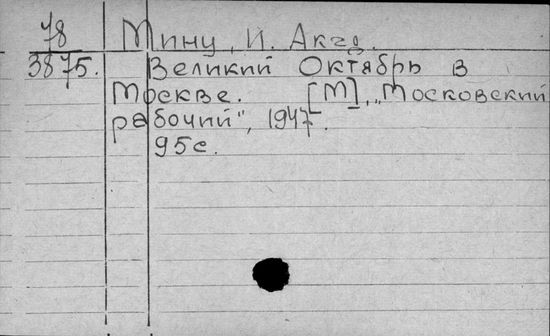 78 Мину, И. Акад.
3875. Великий Октябрь в
Москве. [М], „Московский
рабочий", 1947.
95с.